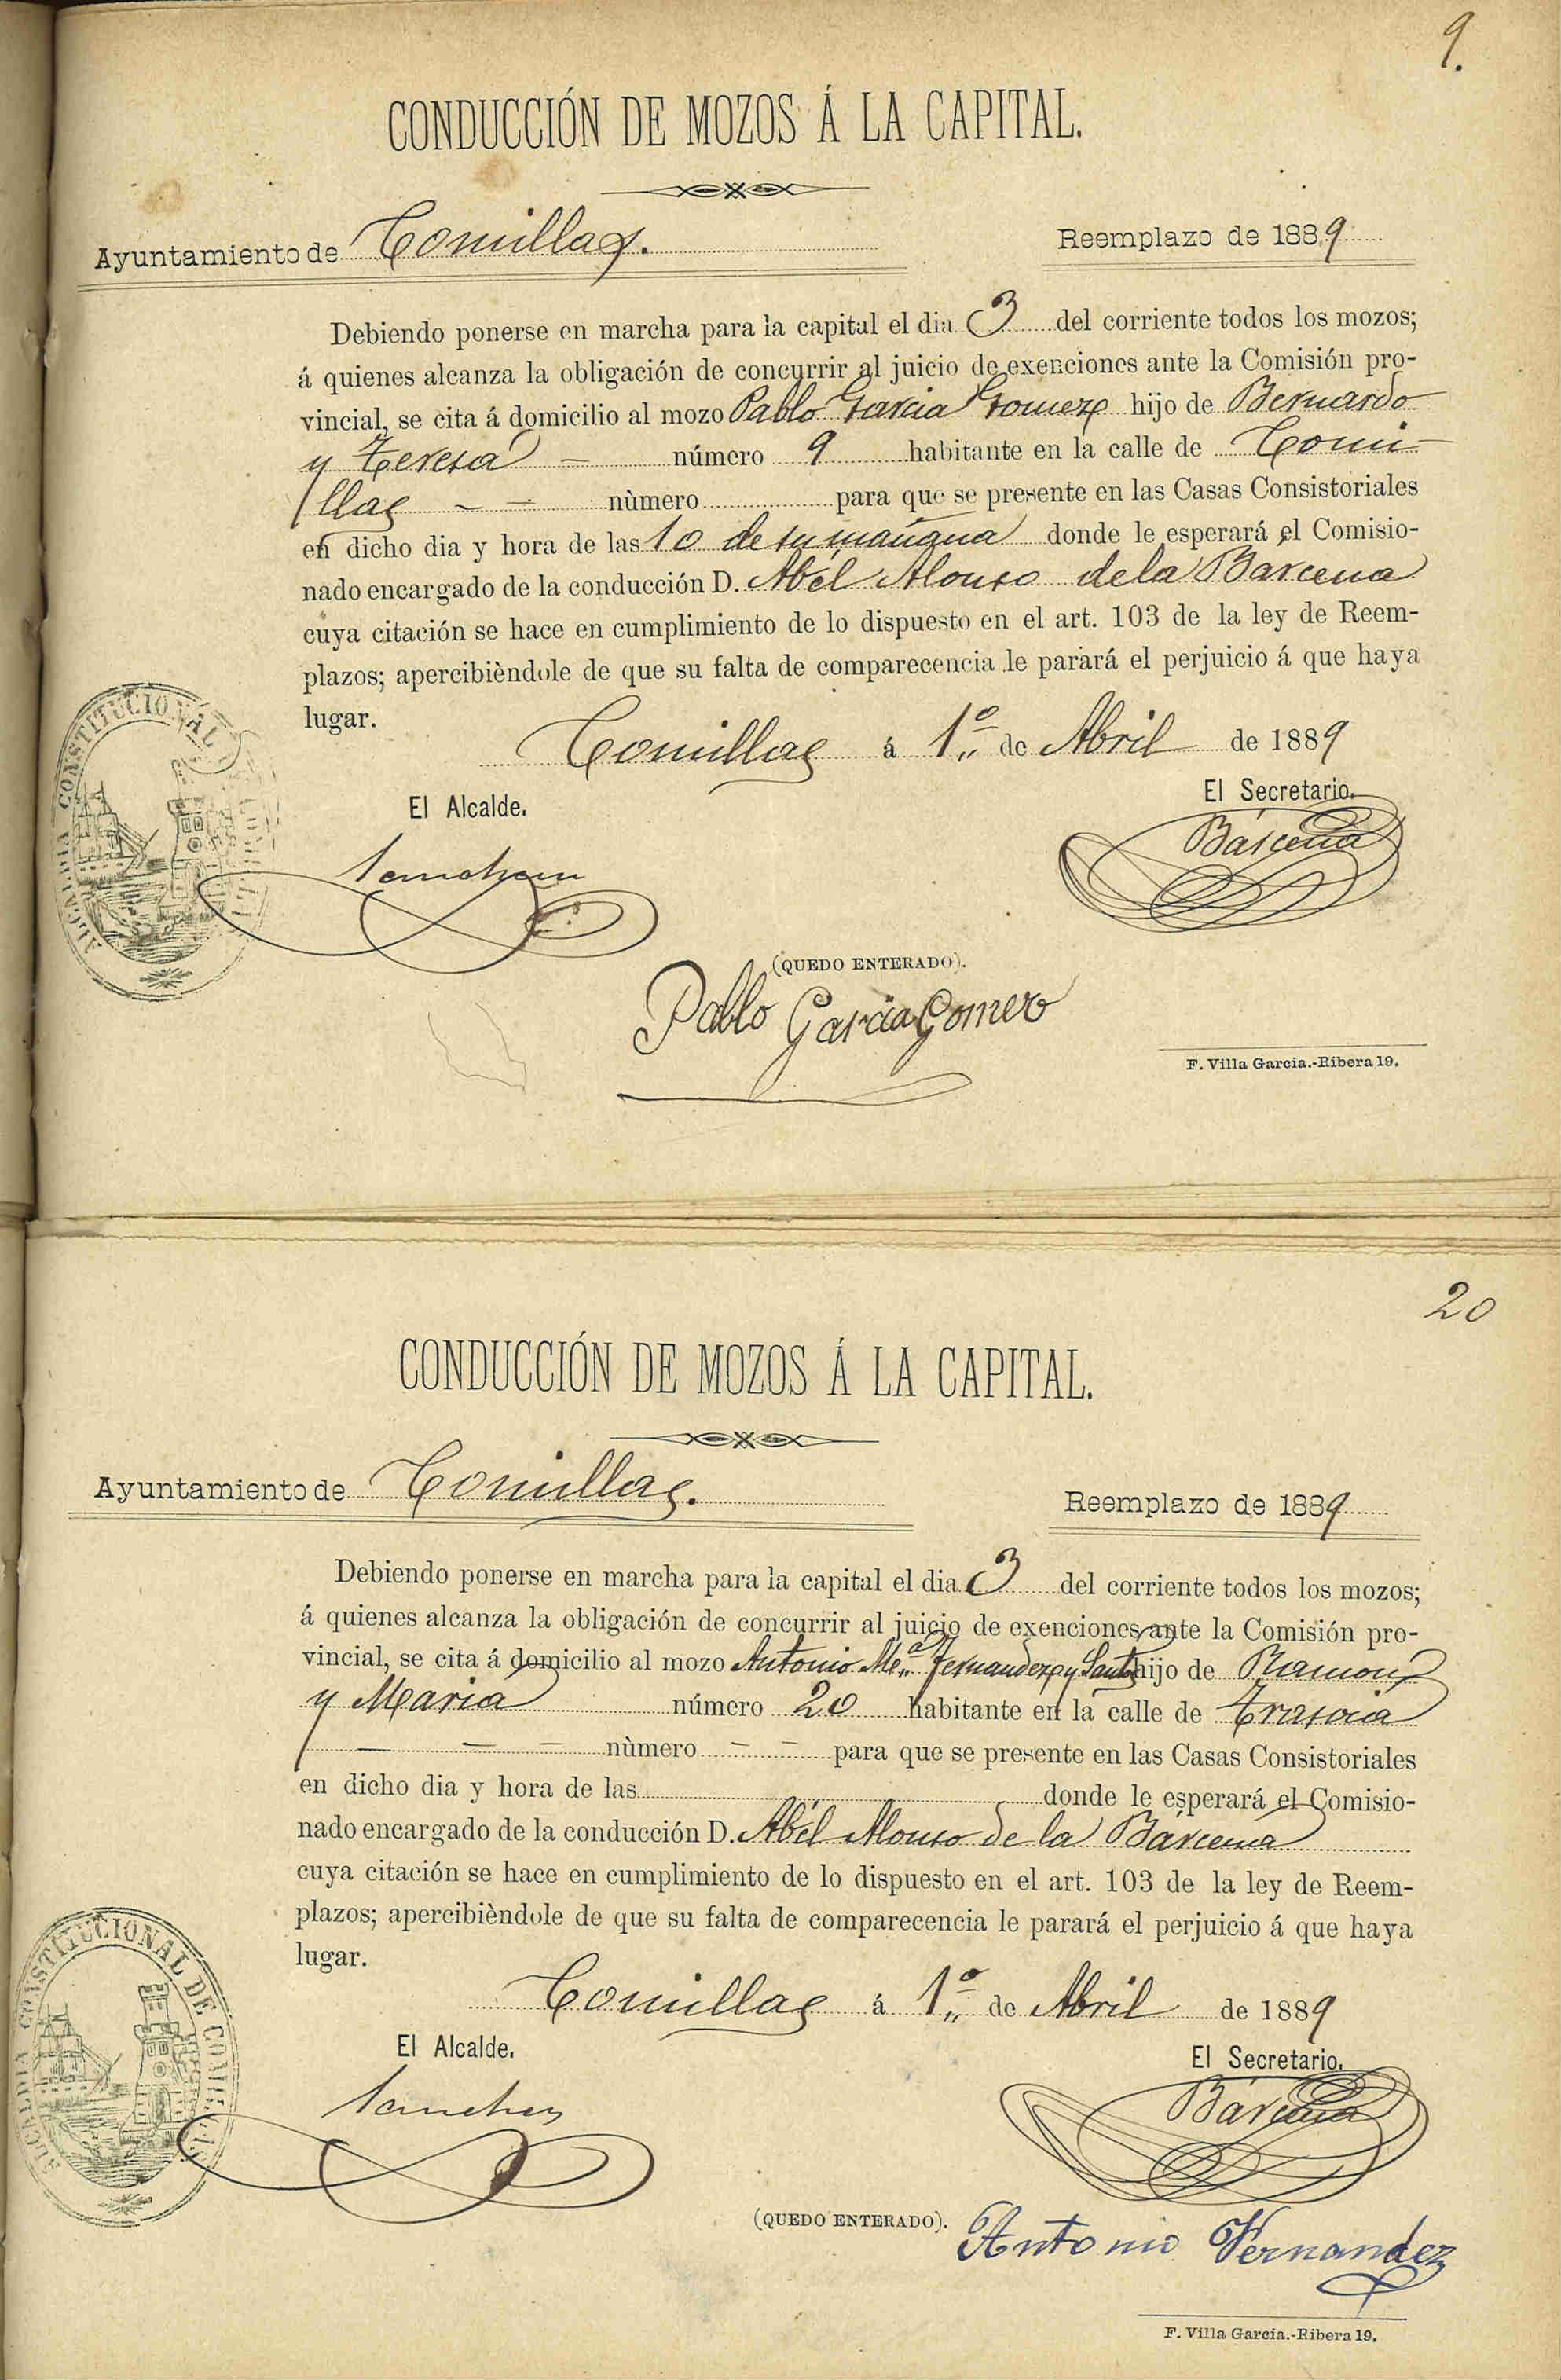 9.
CONDUCCIÓN DE MOZOS Á LA CAPITAL.
Ayuntamiento de Comillas.
Reemplazo de 1889
Debiendo ponerse en marcha para la capital el dia 3 del corriente todos los mozos;
á quienes alcanza la obligación de concurrir al juicio de exenciones ante la Comisión pro-
vincial, se cita á domicilio al mozo Pablo Garcia Gomez hijo de Bernardo
y Teresa número 9 habitante en la calle de Comi-
llas nùmero para que se presente en las Casas Consistoriales
en dicho dia y hora de las 10 de su mañana donde le esperará el Comisio-
nado encargado de la conducción D. Abél Alonso de la Barcena
cuya citación se hace en cumplimiento de lo dispuesto en el art. 103 de la ley de Reem-
plazos; apercibièndole de que su falta de comparecencia le parará el perjuicio á que haya
lugar.
Comillas á 1.º de Abril de 1889
El Alcalde.
El Secretario.
Sanchez
Bárcena
ALCALDIA CONSTITUCIONAL
(QUEDO ENTERADO).
Pablo Garcia Gomez
F. Villa Garcia.-Ribera 19.
20
CONDUCCIÓN DE MOZOS Á LA CAPITAL.
Ayuntamiento de Comillas.
Reemplazo de 1889
Debiendo ponerse en marcha para la capital el dia 3 del corriente todos los mozos;
á quienes alcanza la obligación de concurrir al juicio de exenciones ante la Comisión pro-
vincial, se cita á domicilio al mozo Antonio M.ª Fernandez y Santos hijo de Ramon
y Maria número 20 habitante en la calle de Trasvia
nùmero para que se presente en las Casas Consistoriales
en dicho dia y hora de las donde le esperará el Comisio-
nado encargado de la conducción D. Abél Alonso de la Bárcena
cuya citación se hace en cumplimiento de lo dispuesto en el art. 103 de la ley de Reem-
plazos; apercibièndole de que su falta de comparecencia le parará el perjuicio á que haya
lugar.
Comillas á 1.º de Abril de 1889
El Alcalde.
El Secretario.
Sanchez
Bárcena
ALCALDIA CONSTITUCIONAL DE COMILLAS
(QUEDO ENTERADO).
Antonio Fernandez
F. Villa Garcia.-Ribera 19.